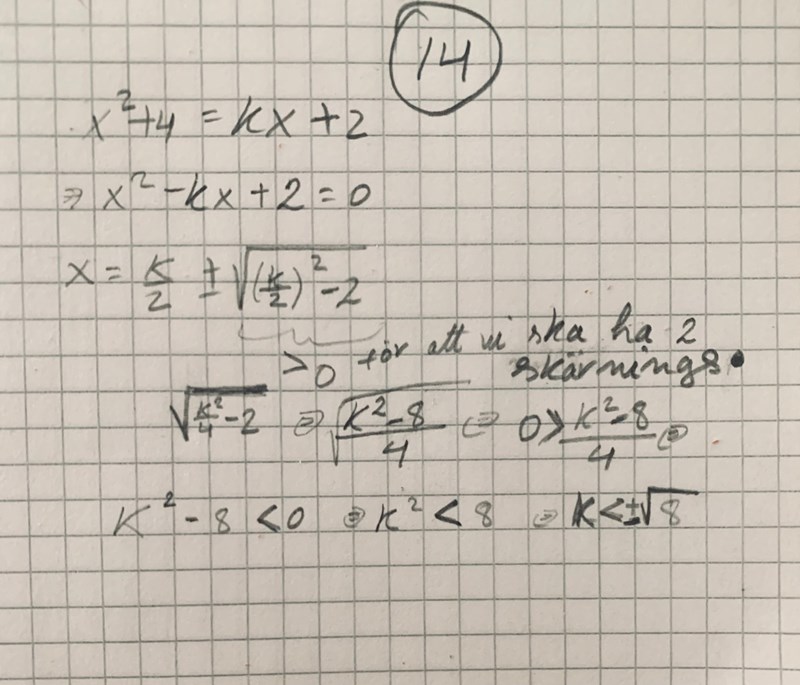 14
x²+4 = kx +2
⇒ x² -kx +2 = 0
x = k/2 ± √((k/2)² -2)
>0 för att vi ska ha 2
skärnings•
√(k²/4 -2) ⇔ √((k²-8)/4) ⇔ 0> (k²-8)/4 ⇔
k² - 8 <0 ⇔ k² < 8 ⇔ k<±√8